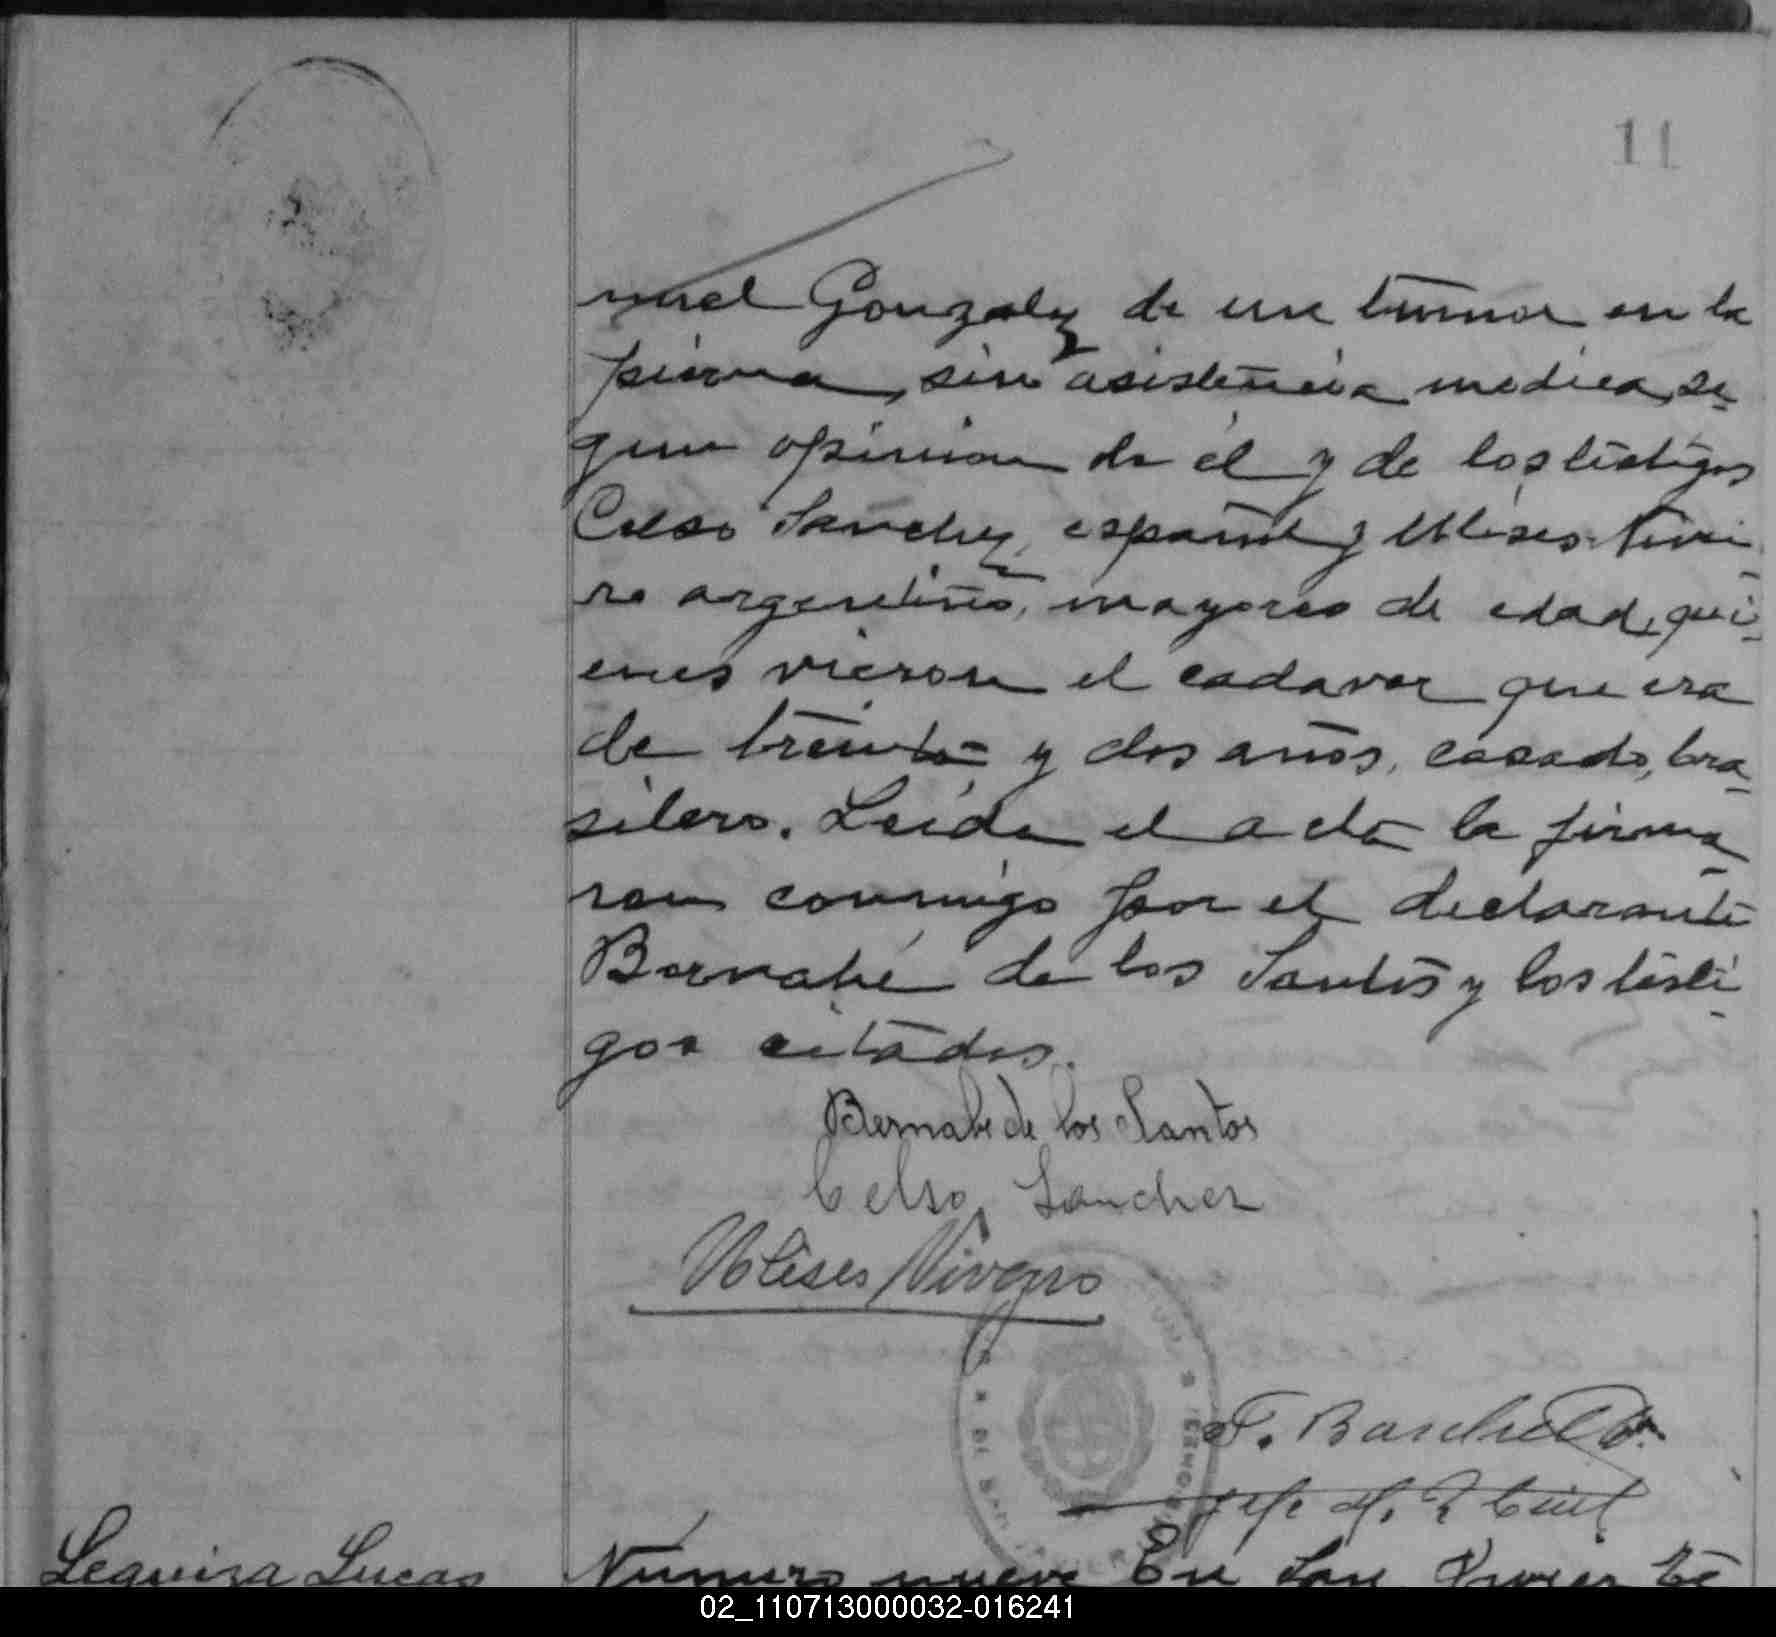 11
nuel Gonzalez de un tumor en la
pierna, sin asistencia medica, se-
gun opinion de él y de los testigos
Celso Sanchez, español y Ulises Nivei-
ro argentino, mayores de edad, qui-
enes vieron el cadaver que era
de treinta y dos años, casado, bra-
silero. Leida el acta la firma-
ron conmigo por el declarante
Bernabé de los Santos y los testi-
gos citados.
Bernabe de los Santos
Celso Sanchez
Ulises Niveyro
F.
Jefe del R. Civil
Leguiza Lucas
Numero nueve En San Xavier Te
02_110713000032-016241